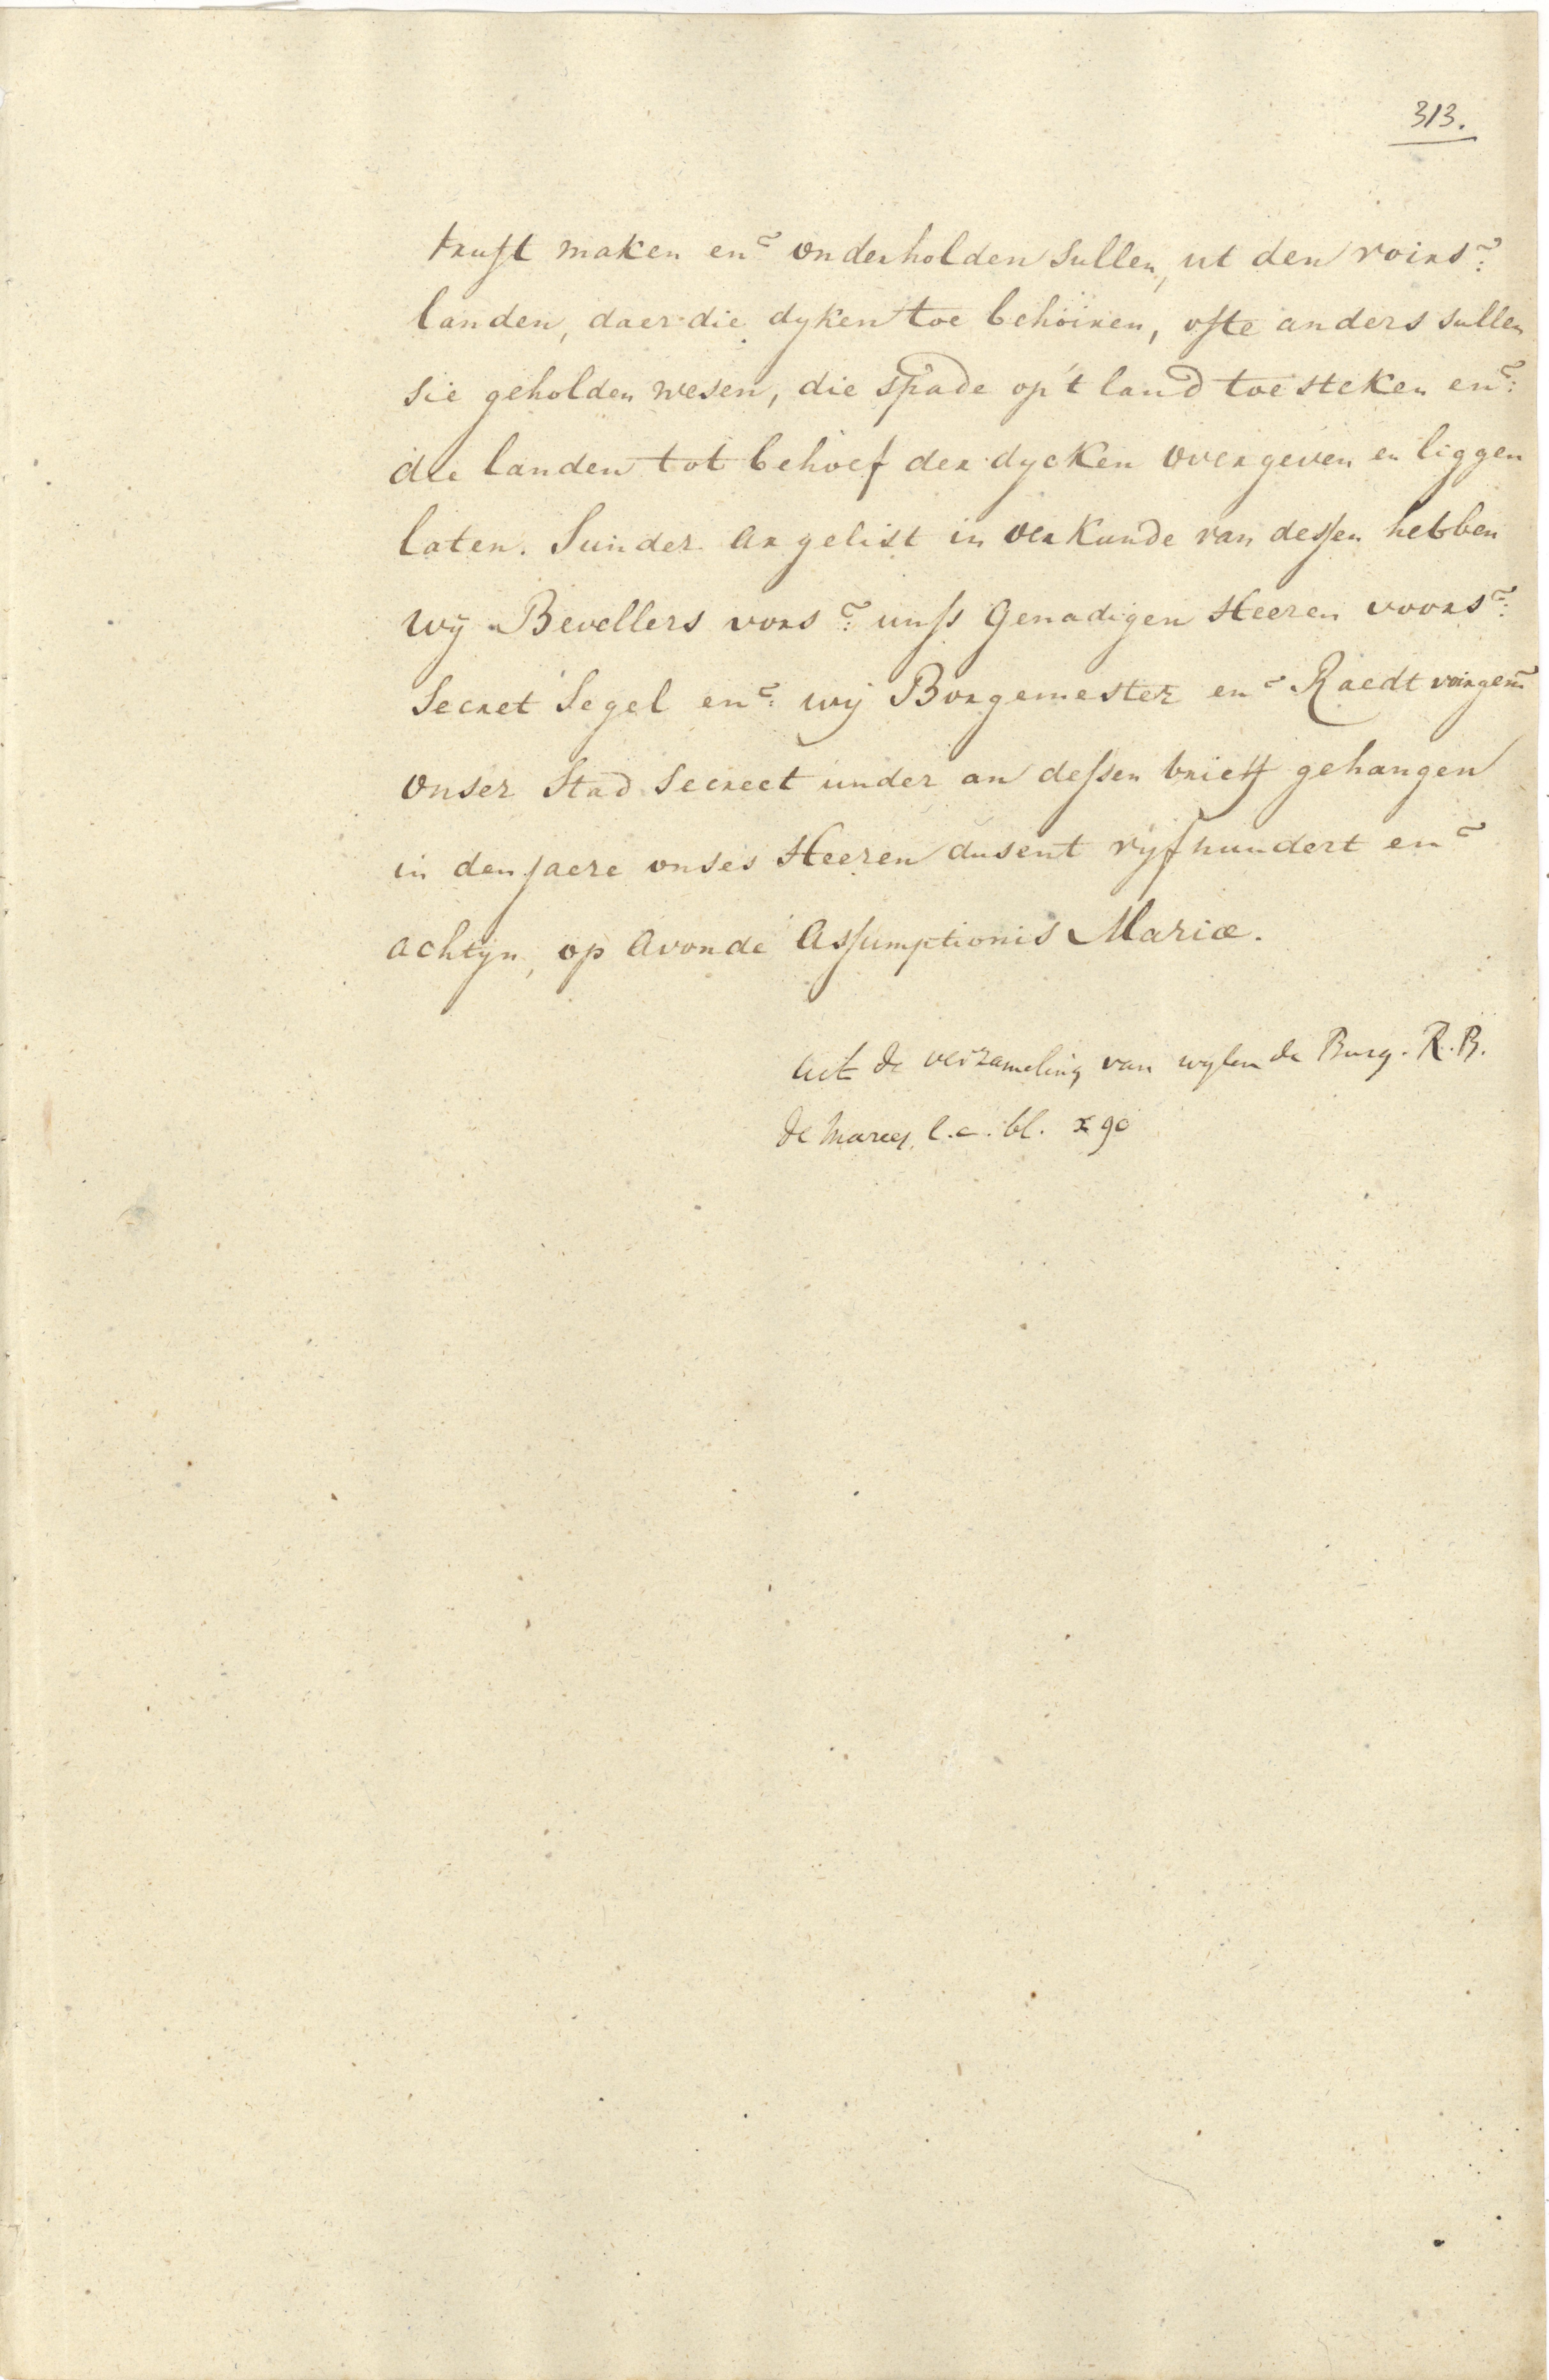 313.
trust maken en˜ onderholden sullen, ut den voirs˜:
landen, daer die dyken toe behöiren, ofte anders sullen
sie geholden wesen, die spade op't land toe steken en˜:
die landen tot behoef der dycken overgeven en liggen
laten. Sunder argelist in oerkunde van dessen hebben
wij Bevellers vors˜: unss Genadigen Heeren voors˜:
Secret Segel en˜: wij Borgemester en˜ Raedt voirgem˜
onser Stad Secreet under an dessen brieff gehangen
in den jaere onses Heeren dusent vijfhundert en˜
achtyn, op avonde Assumptionis Mariæ.
Uit de verzameling van wylen de Burg. R. B.
de Marees, l.c. bl. 90